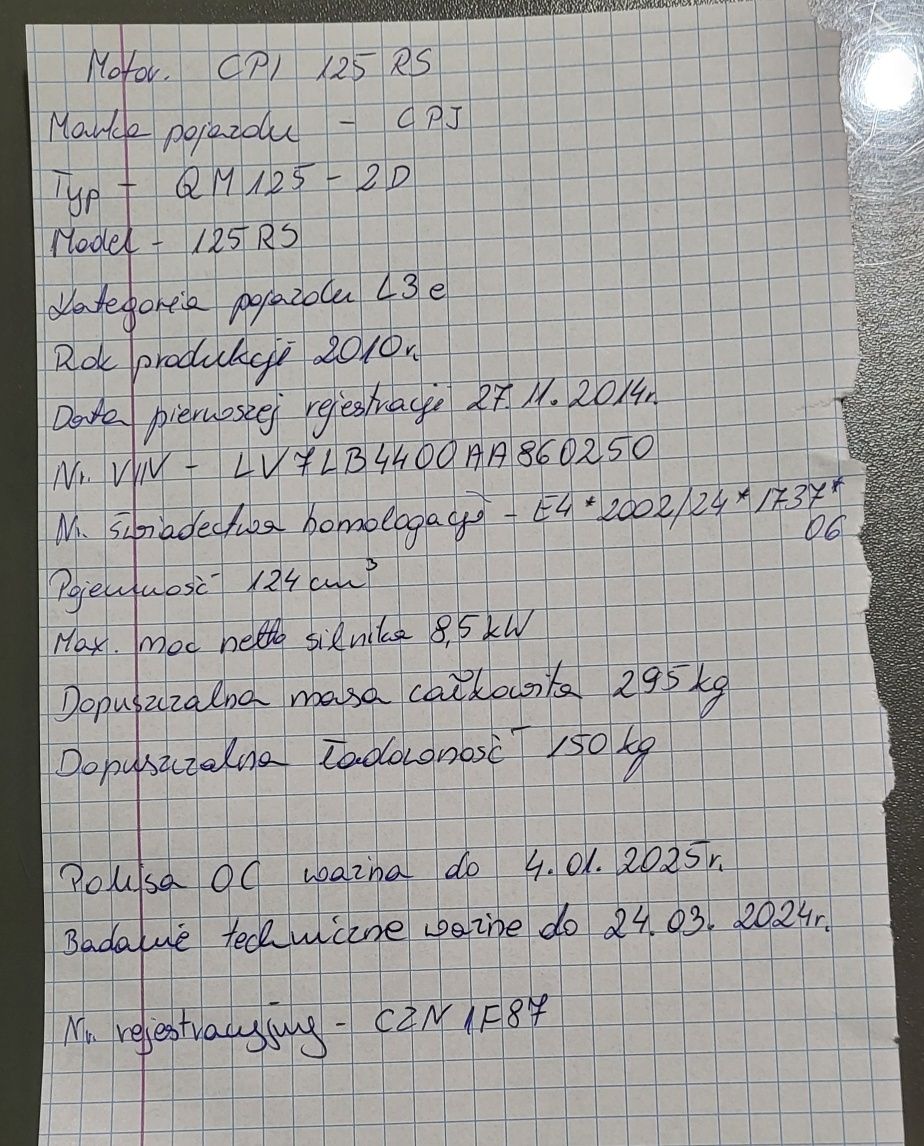 Motor. CPI 125 RS
Marka pojazdu - CPI
Typ - QM125-2D
Model - 125RS
Kategoria pojazdu L3e
Rok produkcji 2010r.
Data pierwszej rejestracji 27.11.2014r.
Nr. VIN - LV7LB4400AA860250
Nr. świadectwa homologacji - E4*2002/24*1737*
06
Pojemność 124 cm³
Max. moc netto silnika 8,5 kW
Dopuszczalna masa całkowita 295 kg
Dopuszczalna ładowność 150 kg
Polisa OC ważna do 4.01.2025r.
Badanie techniczne ważne do 24.03.2024r.
Nr. rejestracyjny - CZN 1F87